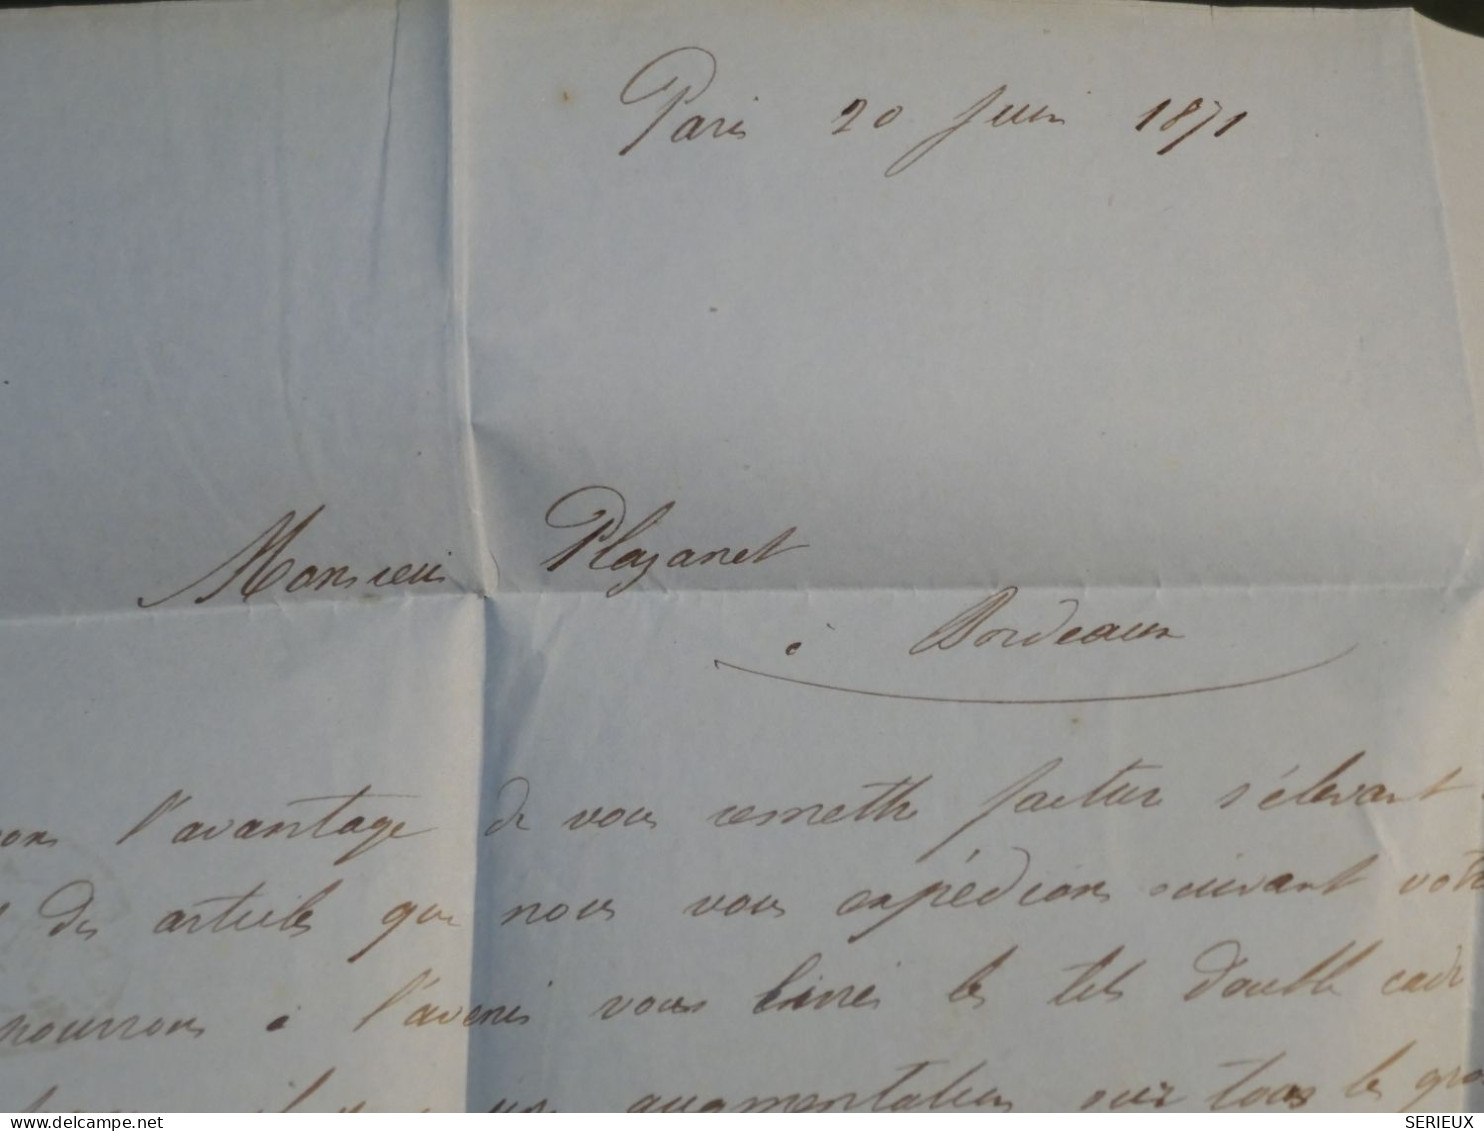 Paris 20 Juin 1871
Monsieur Plazanet
à Bordeaux
l'avantage de vous remettre facture s'élevant
des articles que nous vous expédions suivant
à l'avenir vous livrer les double
augmentation sur tous les
SERIEUX